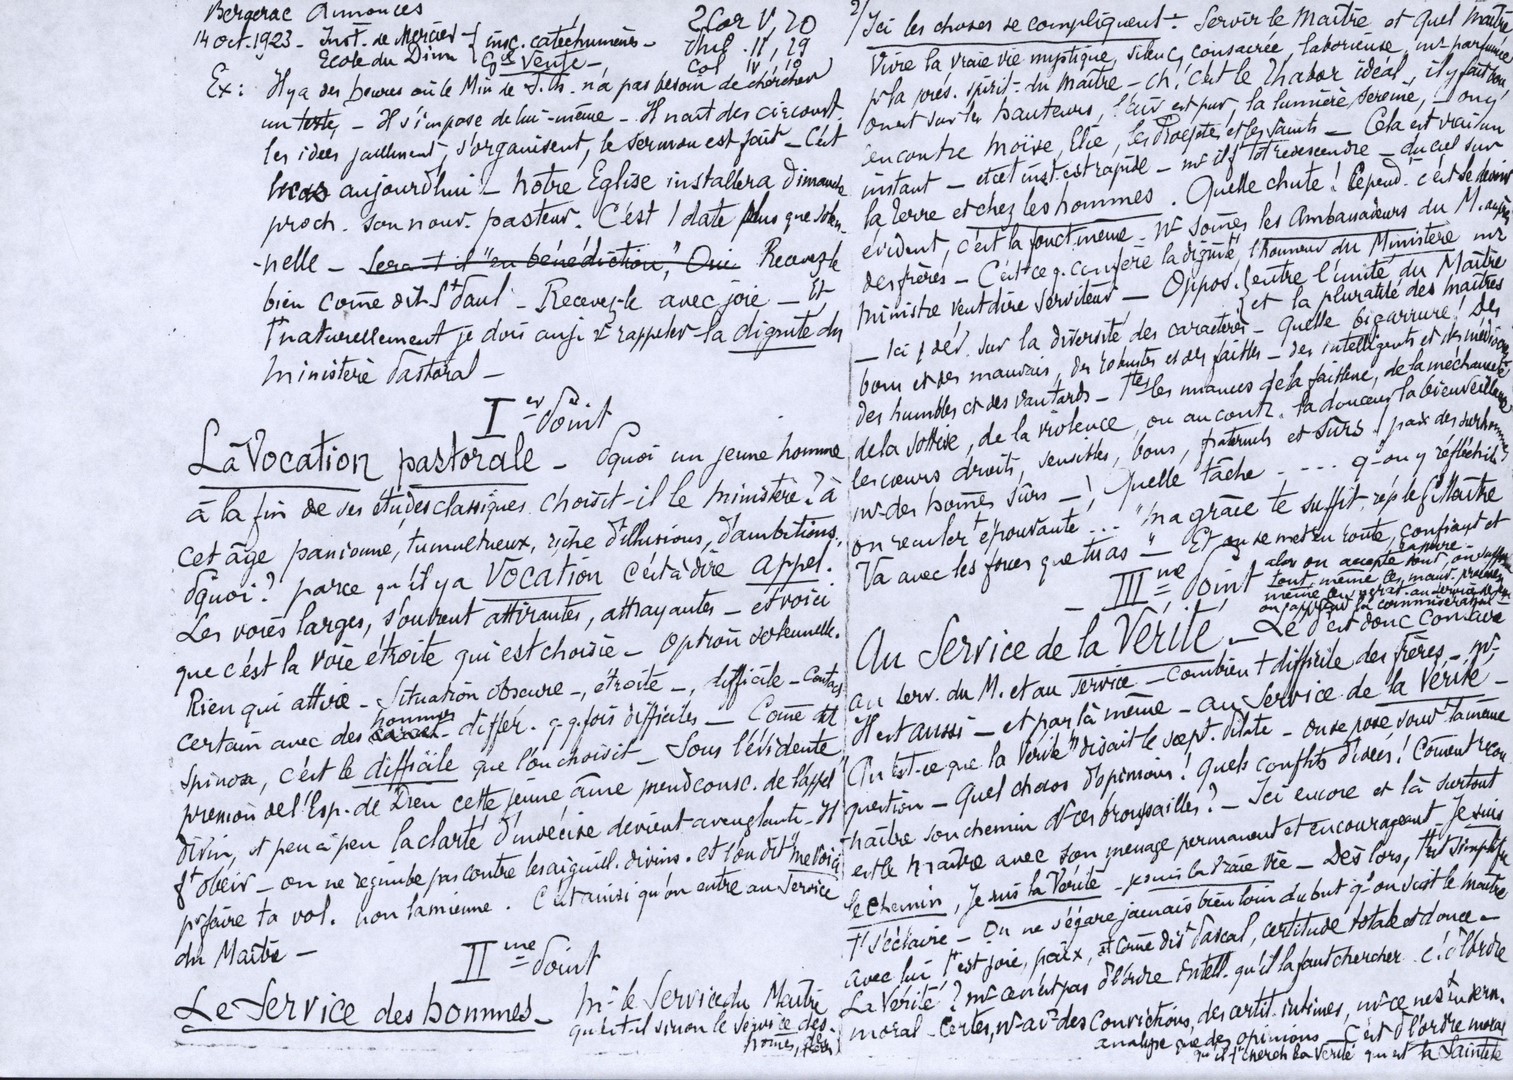 Bergerac Annonces
14 oct. 1923 - Inst. de Mercier - insc. catéchumènes -
Ecole du Dim Vente -
2 Cor V, 20
Phil. II, 29
Col IV, 19
Ex: Il y a des heures où le Min de J. Ch. n'a pas besoin de chercher
un texte, - Il s'impose de lui-même - Il naît des circonst.
les idées jaillissent, s'organisent, le sermon est fait - C'est
le cas aujourd'hui - notre Eglise installera Dimanche
proch. son nouv. pasteur. C'est 1 date plus que solen-
-nelle - Sera-t-il "en bénédiction," Oui. Recevez-le
bien come dit St Paul - Recevez-le avec joie - Et
naturellement je dois aussi rappeler la dignité du
ministère Pastoral -
Ier Point
La Vocation pastorale - Pquoi un jeune homme
à la fin de ses études classiques choisit-il le ministère? à
cet âge passionné, tumultueux, riche d'illusions, d'ambitions,
Pquoi? parce qu'il y a Vocation c'est à dire appel.
Les voies larges, s'ouvrent attirantes, attrayantes - et voici
que c'est la voie étroite qui est choisie - Option solennelle.
Rien qui attire - Situation obscure -, étroite -, difficile - Contacts
certain avec des hommes differ. q.q.fois difficiles - Come dit
Spinoza, c'est le difficile que l'on choisit - Sous l'évidente
pression de l'Esp. de Dieu cette jeune âme prend consc. de l'appel
divin, et peu à peu la clarté d'indécise devient aveuglante - Il
ft obéir - on ne regimbe pas contre les aiguil. divins. et l'on dit "me voici
pr faire ta vol. non la mienne. C'est ainsi qu'on entre au Service
du Maître -
IIme Point
Le Service des hommes - Mr le Service du Maître
qu'est-il sinon le service des
homes,
2/ Ici les choses se compliquent - Servir le Maître et Quel Maître
Vivre la vraie vie mystique, silenc, consacrée, laborieuse,
pr la prés. spirit. du Maître - Ah! c'est le Thabor idéal, il y fait bon,
on est sur les hauteurs, l'air est pur, la lumière sereine, - on y
rencontre Moïse, Elie, les Prophètes, et les saints - Cela est vrai un
instant - et cet inst. est rapide - ms il ft tôt redescendre - du ciel sur
la terre et chez les hommes. Quelle chute! Cepend. c'est le devoir
évident, c'est la fonct. même. Ns somes les Ambassadeurs du M. auprès
des frères - C'est ce q. confère la dignité, l'honneur du Ministère
Ministre veut dire Serviteur - Oppos. entre l'unité du Maître
et la pluralité des maîtres
- Ici 1 dév. sur la diversité des caractères - Quelle bigarrure! Des
bons et des mauvais, des robustes et des faibles - des intelligents et des médiocres
des humbles et des vantards - Ttes les nuances de la faiblesse, de la méchanceté
de la sottise, de la violence, ou au contr. la douceur, la bienveillance
les cœurs droits, sensibles, bons, fraternels et sûrs! pas des surhommes
ms des homes sûrs -! Quelle tâche .... q-on y réfléchit,
on recule épouvanté ... "Ma grâce te suffit, rép le Maître
Va avec les forces que tu as - " Et on se met en route, confiant et
alors on accepte tout, on
tout même les mauv. procédés
même
on apprend la commisération -
- IIIme Point
Au Service de la Vérité - Le P. est donc consacré
au serv. du M. et au service - combien + difficile des frères -
Il est aussi - et par là même - au Service de la Vérité -
Qu'est-ce que la Vérité" disait le scept. Pilate - on se pose souvt la même
question - Quel chaos d'opinions! Quels conflits d'idées! Coment recon-
naître son chemin ds ces broussailles? - Ici encore et là surtout
est le maître avec son message permanent et encourageant - Je suis
le Chemin, Je suis la Vérité - je suis la vraie vie - Dès lors, tt se simplifie
tt s'éclaire - On ne s'égare jamais bien loin du but qd on suit le maître
avec lui tt est joie, paix, et come dist Pascal, certitude totale et douce -
La Vérité? ms ce n'est pas d'ordre intell. qu'il la faut chercher. c. d'ordre
moral - Certes, ns avs des convictions, des certit. intimes, ms ce ne st
analyse que des opinions - C'est d'ordre moral
qu'il ft cherch. la Vérité qui est la Sainteté